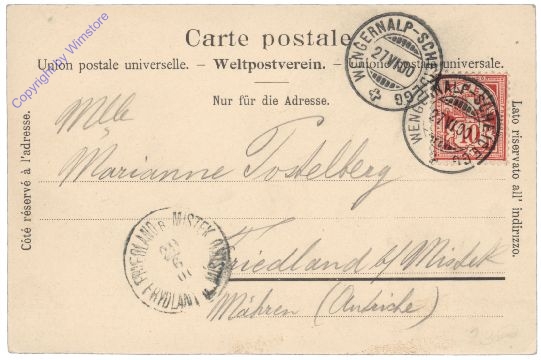 Copyright by Wimstore
Carte postale
Union postale universelle. — Weltpostverein. — Unione postale universale.
Nur für die Adresse.
WENGERNALP-SCHEIDEGG
27.VI.00
WENGERNALP-SCHEIDEGG
27.VI.00
10
Côté réservé à l'adresse.
Lato riservato all' indirizzo.
Mlle
Marianne Tostelberg
Friedland b/ Mistek
Mähren (Autriche)
FRIEDLAND B. MISTEK
FRYDLANT